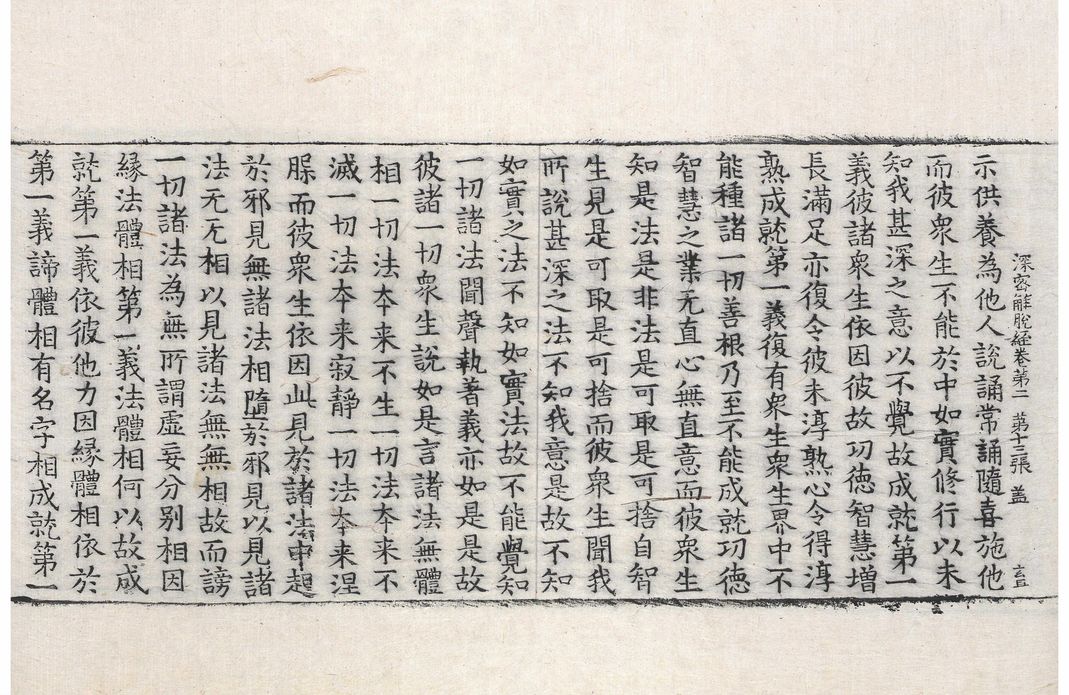 深密解脫經卷第二 第十三張 盖
示供養為他人說誦常誦隨喜施他
而彼衆生不能於中如實修行以未
知我甚深之意以不覺故成就第一
義彼諸衆生依因彼故功德智慧增
長滿足亦復令彼未淳熟心令得淳
熟成就第一義復有衆生衆生界中不
能種諸一切善根乃至不能成就功德
智慧之業无直心無直意而彼衆生
知是法是非法是可取是可捨自智
生見是可取是可捨而彼衆生聞我
所說甚深之法不知我意是故不知
如實之法不知如實法故不能覺知
一切諸法聞聲執著義亦如是是故
彼諸一切衆生說如是言諸法無體
相一切法本来不生一切法本来不
滅一切法本来寂静一切法本来涅
槃而彼衆生依因此見於諸法中起
於邪見無諸法相墮於邪見以見諸
法无无相以見諸法無無相故而謗
一切諸法為無所謂虛妄分別相因
緣法體相第一義法體相何以故成
就第一義依彼他力因緣體相依於
第一義諦體相有名字相成就第一